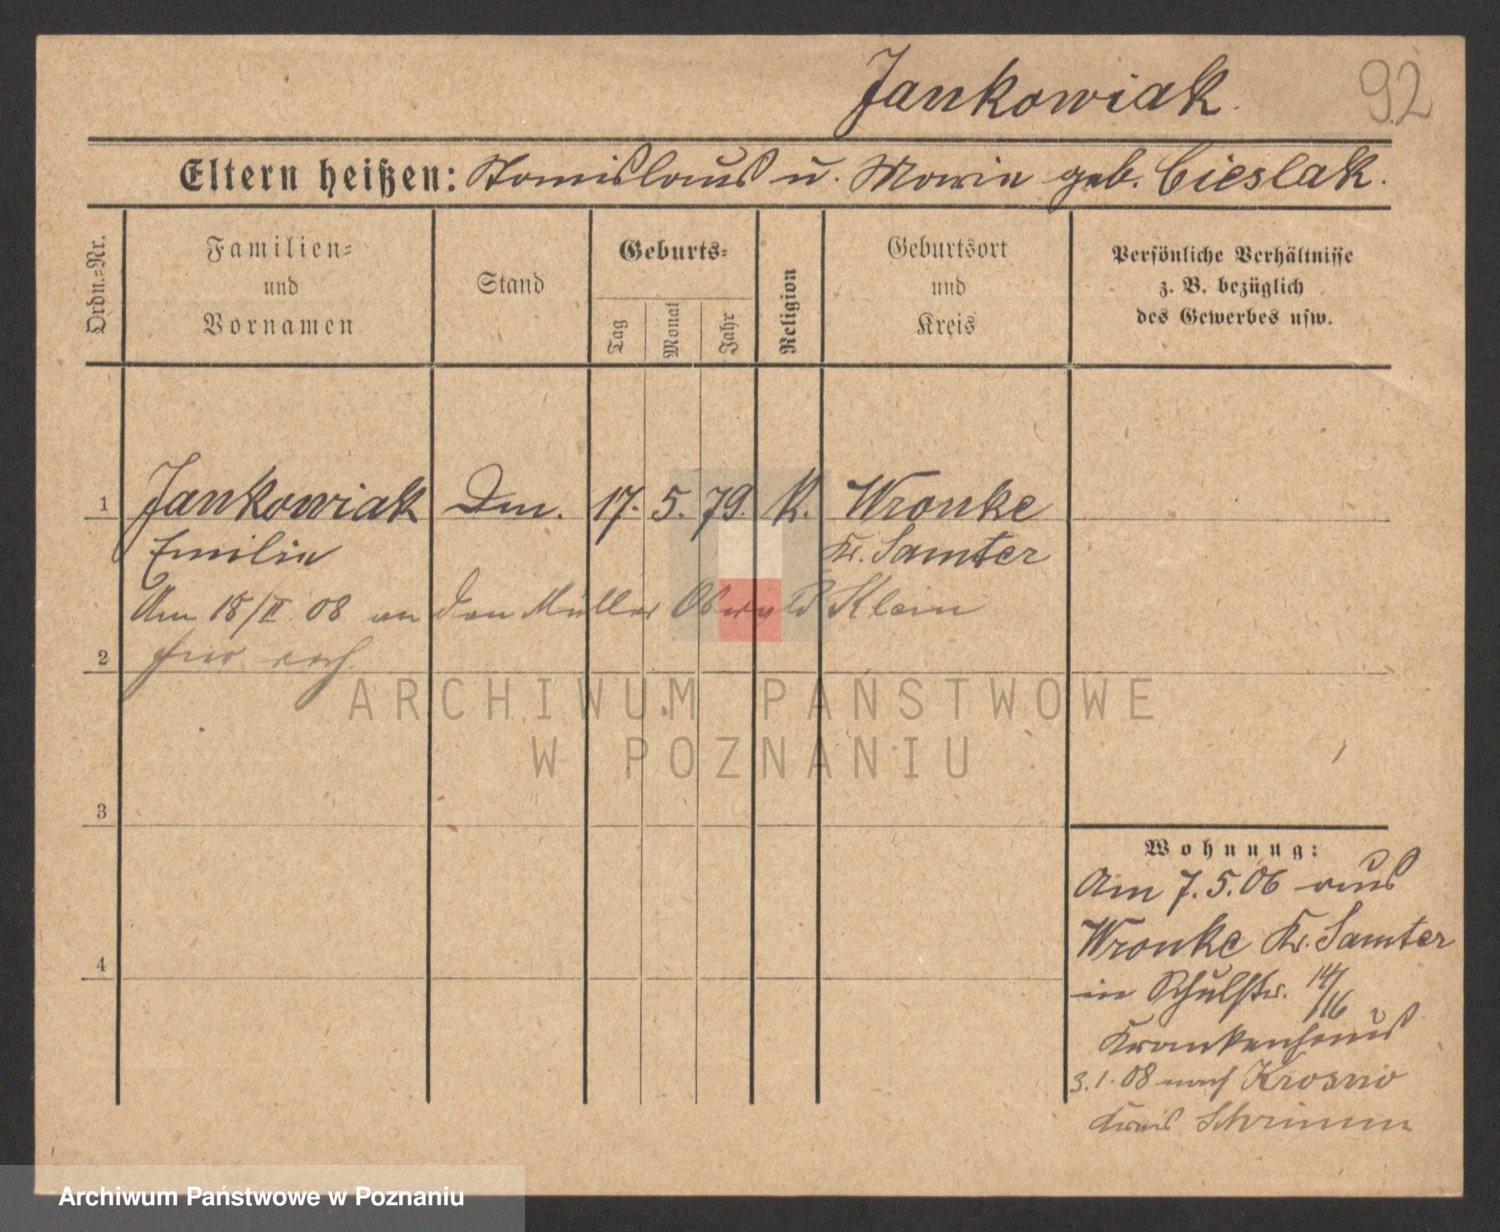 Jankowiak.
92
Eltern heißen: Stanislaus u. Maria geb. Cieslak.
Ordn.=Nr.
Familien=
und
Vornamen
Stand
Geburts=
Tag
Monat
Jahr
Religion
Geburtsort
und
Kreis
Persönliche Verhältnisse
z. B. bezüglich
des Gewerbes usw.
1 Jankowiak 17. 5. 79. K. Wronke
Emilia Kr. Samter
Am 18/II 08 an den Müller Klein
2
3
4
Wohnung:
Am 7.5.06 aus
Wronke Kr. Samter
in Schulstr. 14/16
Krankenhaus
3.1.08 nach Krosno
Kreis Schrimm
ARCHIWUM PAŃSTWOWE
W POZNANIU
Archiwum Państwowe w Poznaniu